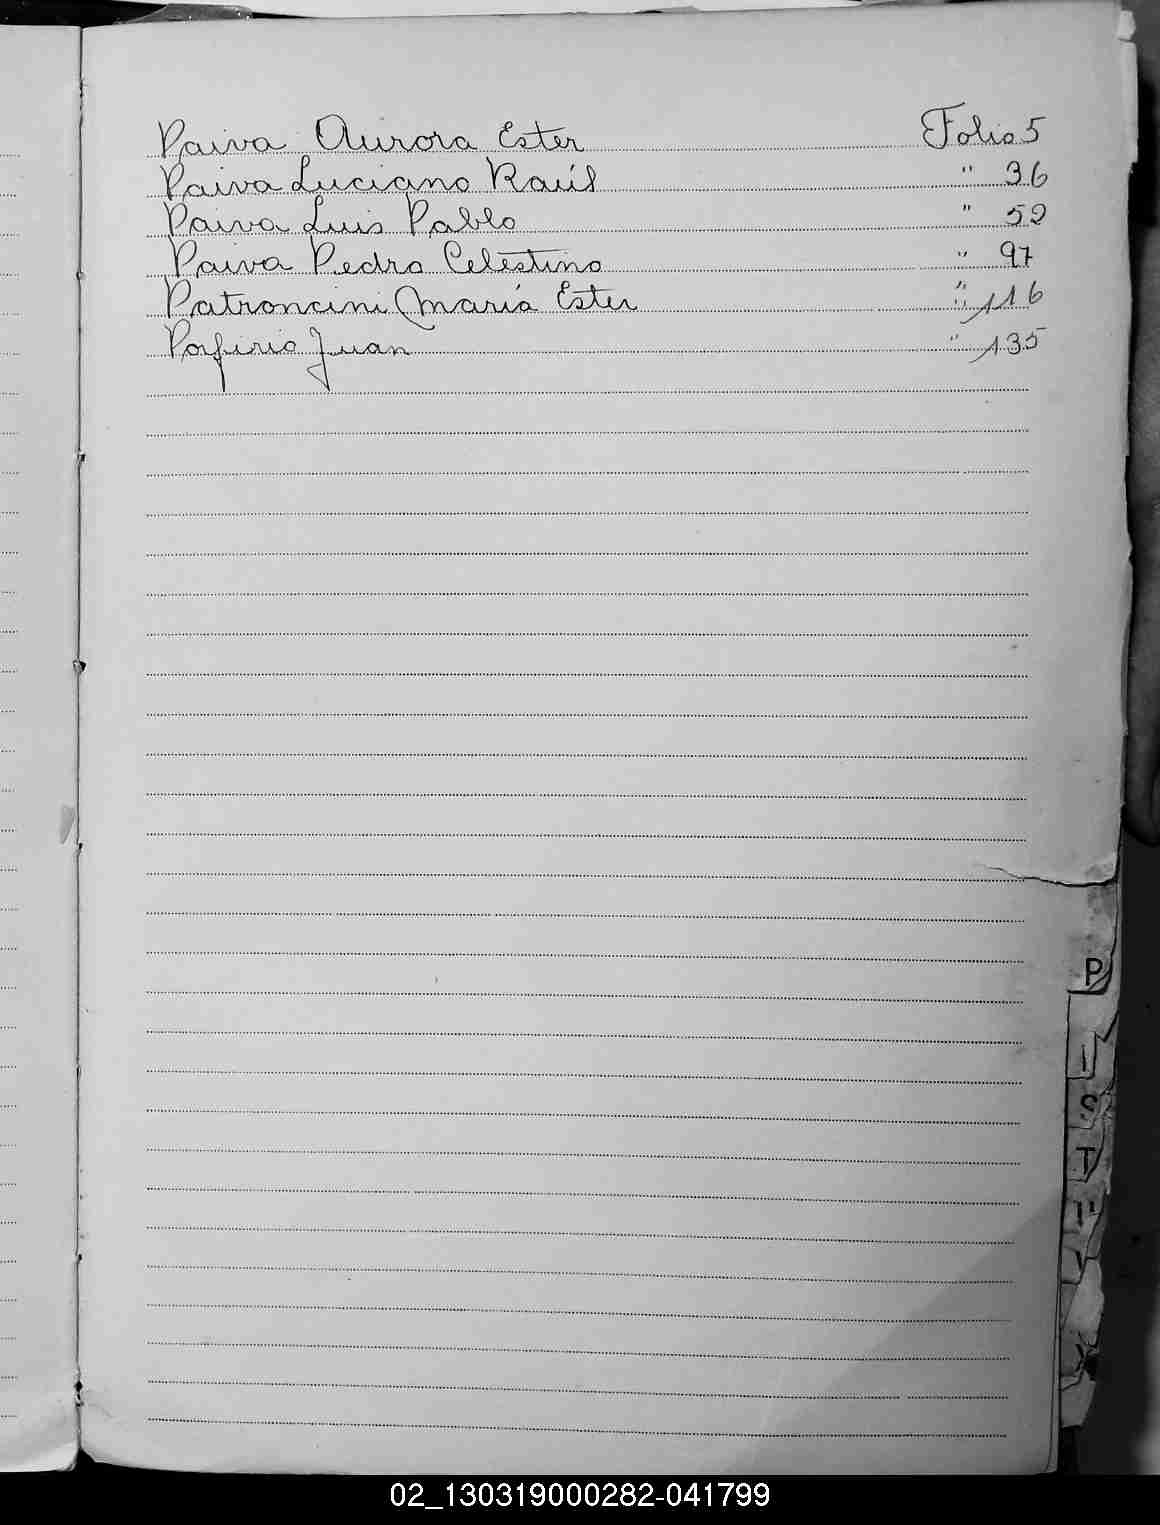 Paiva Aurora Ester Folio 5
Paiva Luciano Raúl " 36
Paiva Luis Pablo " 52
Paiva Pedro Celestino " 97
Patroncini María Ester " 116
Porfirio Juan " 135
P
S
T
V
Y
02_130319000282-041799